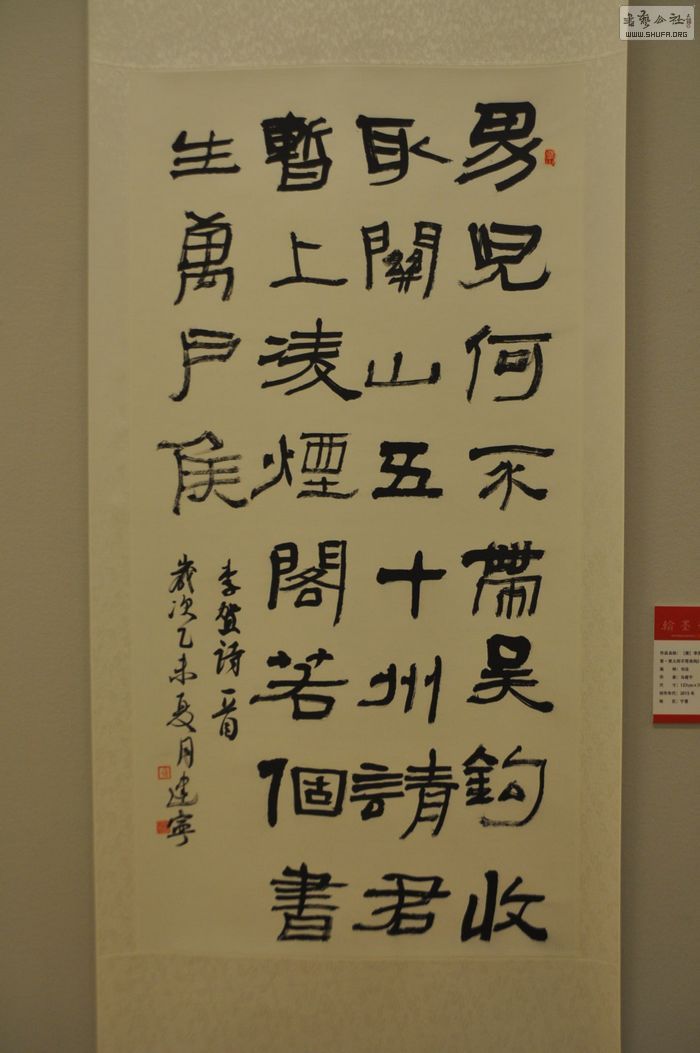 男兒何不帶吳鉤收
取關山五十州請君
暫上凌煙閣若個書
生萬户侯
李賀詩一首
歲次乙未夏月建寧
書藝公社
WWW.SHUFA.ORG
翰墨